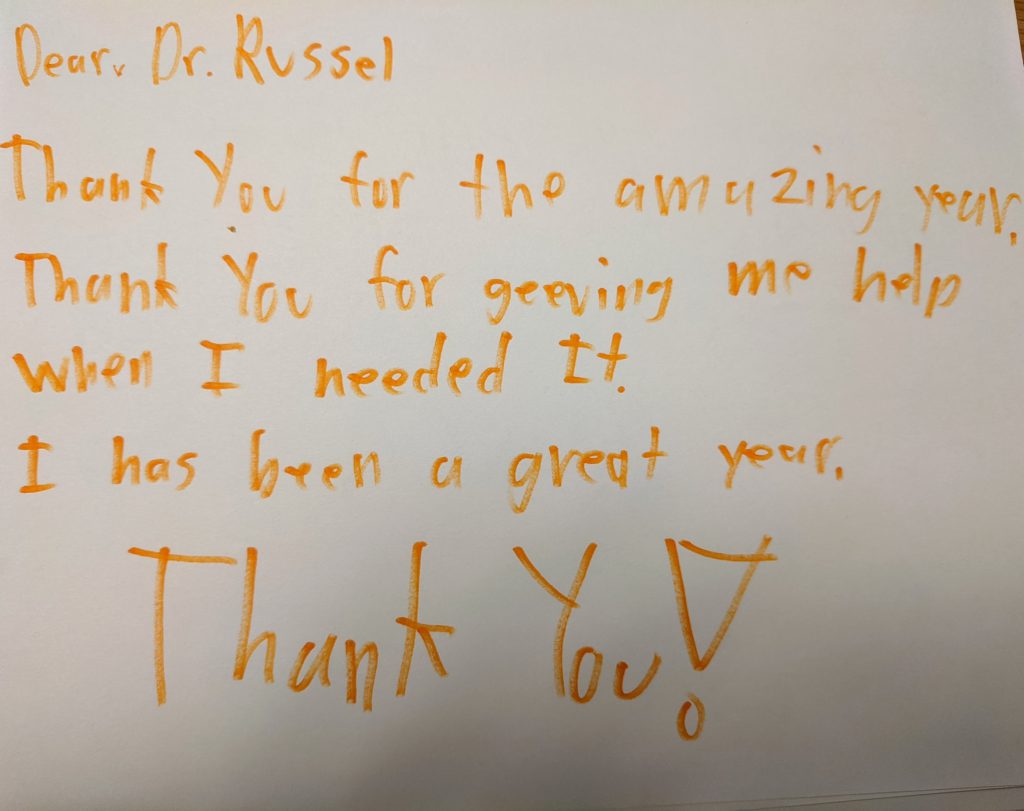 Dear, Dr. Russel
Thank You for the amazing year.
Thank You for geeving me help
when I needed It.
I has been a great year.
Thank You!